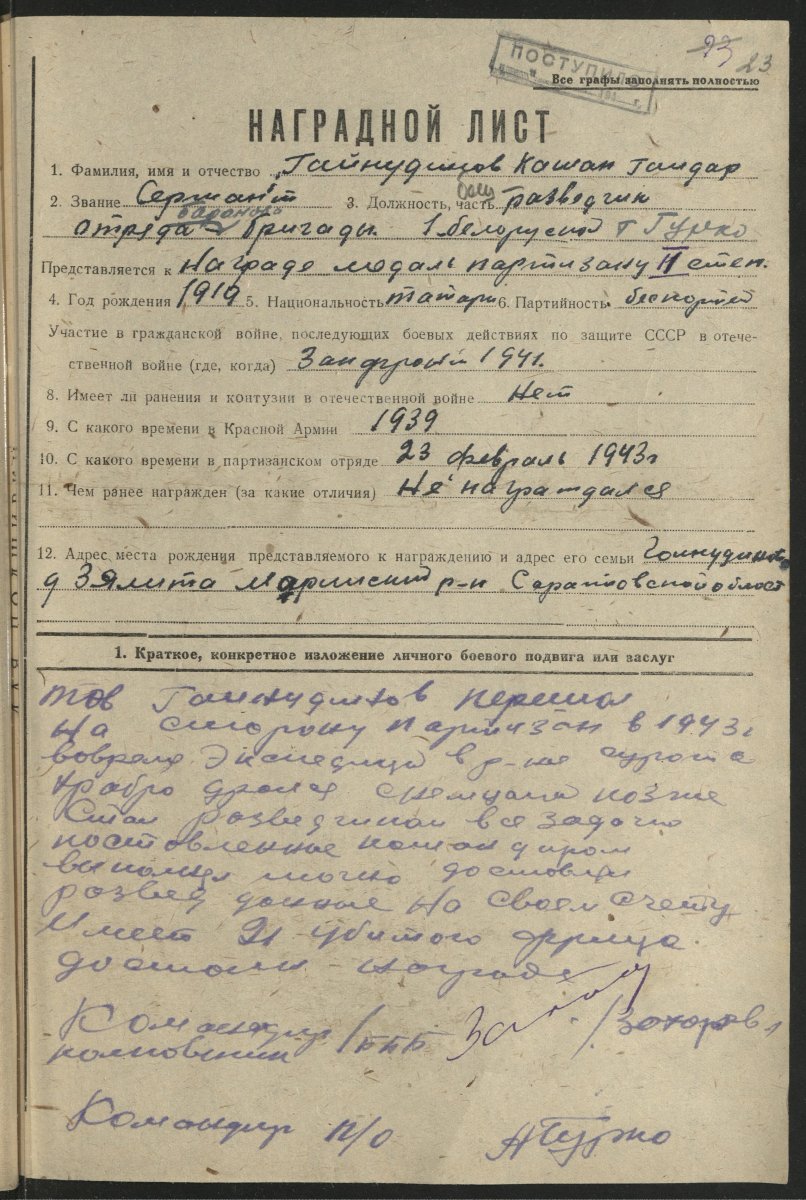 23 23
ПОСТУПИЛО
Все графы заполнять полностью
НАГРАДНОЙ ЛИСТ
1. Фамилия, имя и отчество Гайнудинов Кашан Гандар
2. Звание Сержант 3. Должность, часть разведчик
отряда бригады 1 белоруской Гурко
Представляется к награде медаль партизану II степ.
4. Год рождения 1919 5. Национальность татарин 6. Партийность
Участие в гражданской войне, последующих боевых действиях по защите СССР в отече-
ственной войне (где, когда) Зап фронт 1941.
8. Имеет ли ранения и контузии в отечественной войне Нет
9. С какого времени в Красной Армии 1939
10. С какого времени в партизанском отряде 23 февраль 1943г
11. Чем ранее награжден (за какие отличия) Не награждался
12. Адрес места рождения представляемого к награждению и адрес его семьи
д р-н Саратовской област
1. Краткое, конкретное изложение личного боевого подвига или заслуг
тов Гайнудинов перешол
на сторону партизан в 1943г
вовремя экспедиций в р-не
храбро дрался снемцами позже
стал разведчиком все задачи
поставленные командиром
выполнял точно доставлял
развед данные На своем счету
Имеет 21 убитого фрица.
достоин награде
Командир /ППБ /Захаров/
полковник
Командир п/о АГурко